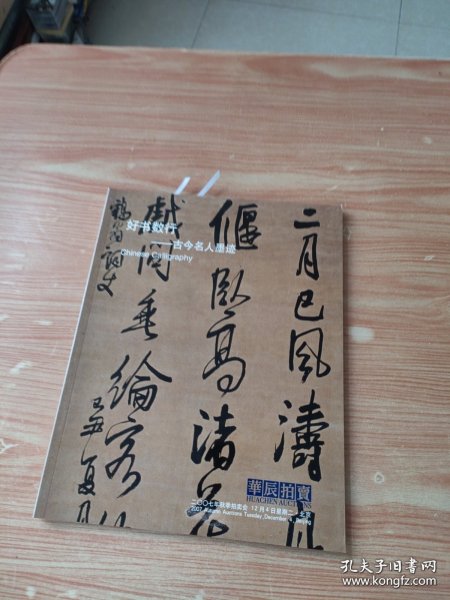 二月已风涛
偃卧高渚
戏问垂纶客
好书数行
——古今名人墨迹
Chinese Calligraphy
華辰拍賣
HUACHEN AUCTIONS
二〇〇七年秋季拍卖会 12月4日星期二 北京
2007 Autumn Auctions Tuesday, December 4, Beijing
孔夫子旧书网
www.kongfz.com